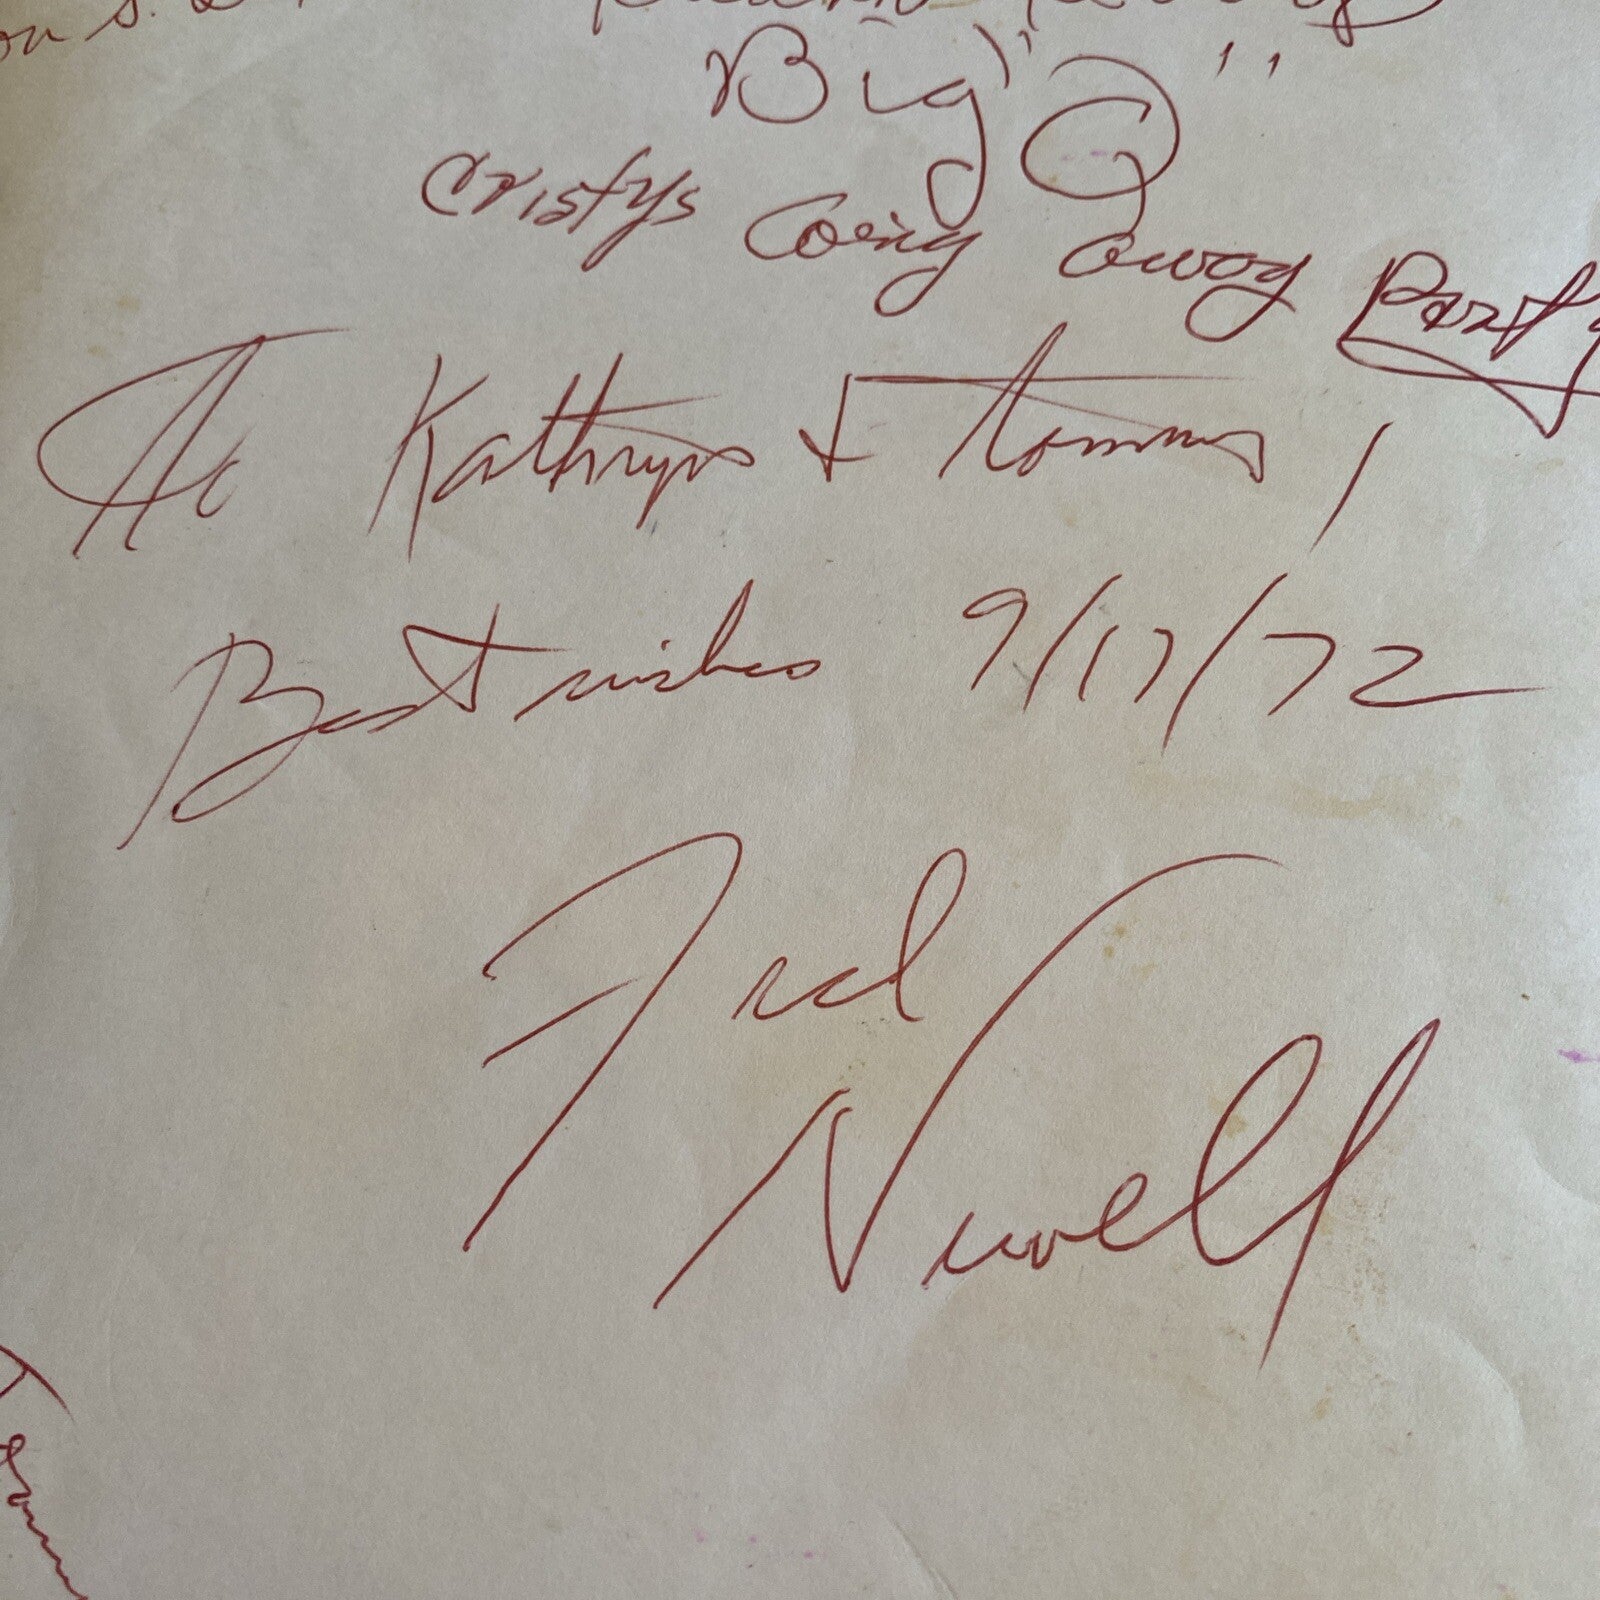 Big "Q"
Cristys Going Away Party
To Kathryn & Tommy,
Best wishes 9/17/72
Fred
Newell